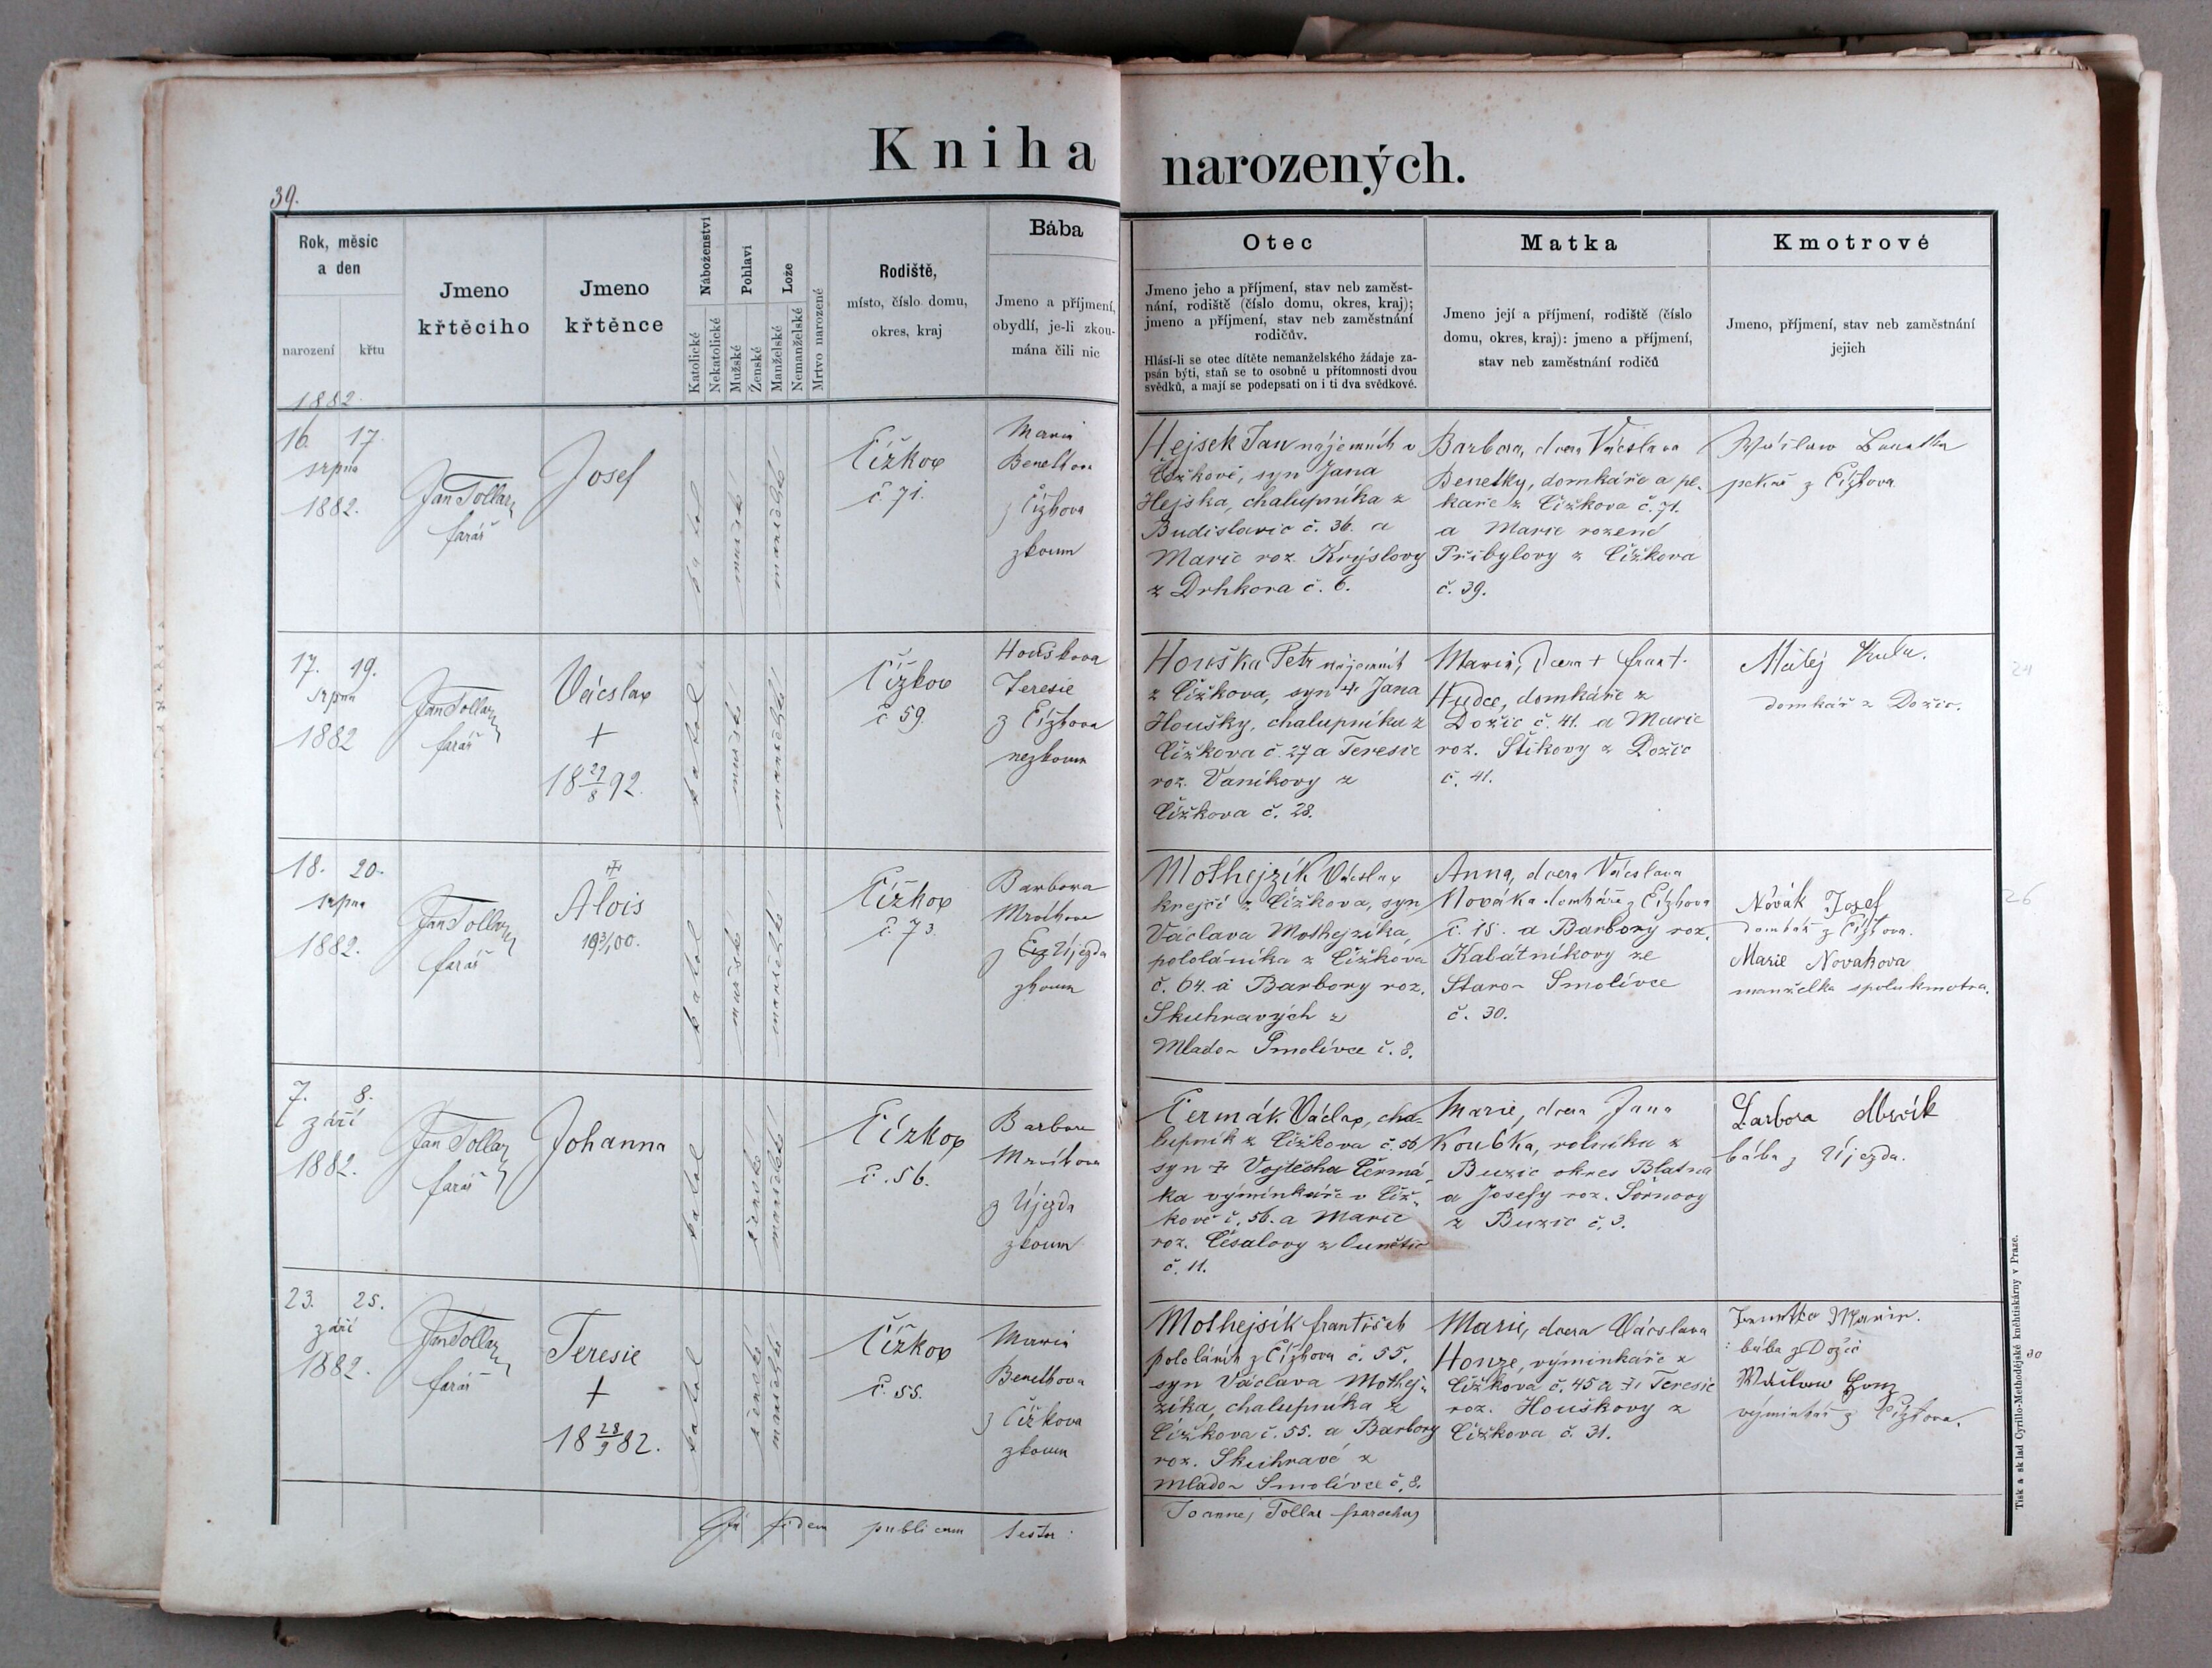 Kniha narozených.
39.
Rok, měsíc
a den
narození
křtu
Jmeno
křtěcího
Jmeno
křtěnce
Náboženství
Katolické
Nekatolické
Pohlaví
Mužské
Ženské
Lože
Manželské
Nemanželské
Mrtvo narozené
Rodiště,
místo, číslo domu,
okres, kraj
Bába
Jmeno a příjmení,
obydlí, je-li zkou-
mána čili nic
Otec
Jmeno jeho a příjmení, stav neb zaměst-
nání, rodiště (číslo domu, okres, kraj);
jmeno a příjmení, stav neb zaměstnání
rodičův.
Hlásí-li se otec dítěte nemanželského žádaje za-
psán býti, staň se to osobně u přítomnosti dvou
svědků, a mají se podepsati on i ti dva svědkové.
Matka
Jmeno její a příjmení, rodiště (číslo
domu, okres, kraj): jmeno a příjmení,
stav neb zaměstnání rodičů
Kmotrové
Jmeno, příjmení, stav neb zaměstnání
jejich
1882.
16. 17.
srpna
1882.
Jan Tollar
farář
Josef
katol
mužské
manželské
Čížkov
č. 71.
Marie
Benetkova
z Čížkova
zkoum
Hejsek Jan nájemník v
Čížkově, syn Jana
Hejska, chalupníka z
Budislavic č. 36. a
Marie roz. Krýslovy
z Drhkova č. 6.
Barbora, dcera Vácslava
Benetky, domkáře a pe-
kaře z Čížkova č. 71.
a Marie rozené
Přibylovy z Čížkova
č. 39.
pekař z Čížkova
17. 19.
srpna
1882
Jan Tollar
farář
Vácslav
+
18 29/8 92.
katol
mužské
manželské
Čížkov
č 59.
Houškova
Teresie
z Čížkova
nezkoum
Houška Petr nájemník
z Čížkova, syn + Jana
Houšky, chalupníka z
Čížkova č. 27 a Teresie
roz. Vaníkovy z
Čížkova č. 28.
Marie, dcera + Frant.
Hudce, domkáře z
Dožic č. 41. a Marie
roz. Šikovy z Dožic
č. 41.
Matěj
domkář z Dožic.
24
18. 20.
srpna
1882.
Jan Tollar
farář
+
Alois
katol
mužské
manželské
Čížkov
č. 73.
Barbora
Mrvíkova
z Újezda
zkoum
Mothejzík Vácslav
krejčí z Čížkova, syn
Václava Mothejzíka,
pololáníka z Čížkova
č. 64. a Barbory roz.
Skuhravých z
Mlado- Smolivce č. 8.
Anna, dcera Vácslava
Nováka domkáře z Čížkova
č. 15. a Barbory roz.
Kabátníkovy ze
Staro- Smolivce
č. 30.
Novák Josef
domkář z Čížkova.
Marie Novakova
manželka spolukmotra.
26
7. 8.
září
1882.
Jan Tollar
farář
Johanna
katol
ženské
manželské
Čížkov
č. 56.
Barbora
Mrvíkova
z Újezda
zkoum
Čermák Václav, cha-
lupník z Čížkova č. 56
syn + Vojtěcha Čermá-
ka výminkáře v Číž-
kově č. 56. a Marie
roz. Česalovy z
č. 11.
Marie, dcera Jana
Koubka, rolníka z
Buzic okres Blatna
a Josefy roz. Šornovy
z Buzic č. 3.
Barbora Mrvík
bába z Újezda.
23. 25.
září
1882.
Jan Tollar
farář
Teresie
+
18 28/9 82.
katol
ženské
manželské
Čížkov
č. 55.
Marie
Benetkova
z Čížkova
zkoum
Mothejsík František
pololáník z Čížkova č. 55.
syn Václava Mothej-
zíka, chalupníka z
Čížkova č. 55. a Barbory
roz. Skuhravé z
Mlado- Smolivce č. 8.
Marie, dcera Vácslava
Honze, výminkáře z
Čížkova č. 45 a + Teresie
roz. Houškovy z
Čížkova č. 31.
bába z Dožic
výminkář z Čížkova.
30
fidem publicam testor:
Joannes Tollar parochus
Tisk a sklad Cyrillo-Methodějské knihtiskárny v Praze.